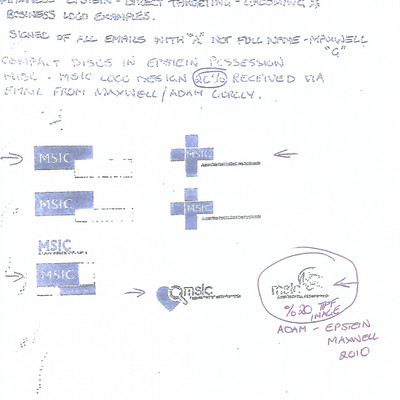 EPSTEIN - DIRECT TARGETING - GROOMING
BUSINESS LOGO EXAMPLES.
SIGNED OF ALL EMAILS WITH "A" NOT FULL NAME - MAXWELL
"G"
COMPACT DISCS IN EPSTEIN POSSESSION
MISC - MSIC LOGO DESIGN 20% RECEIVED VIA
EMAIL FROM MAXWELL / ADAM
MSIC
MSIC
MSIC
MSIC
MSIC
MSIC
msic
msic
% 20 TIFF
IMAGE
ADAM - EPSTEIN
MAXWELL
2010